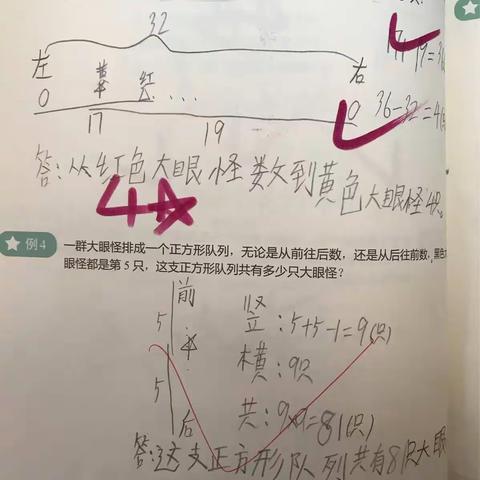 32
左 黄 红 .... 右
0 0
17 19
17+19=36
36-32=4(只)
答:从红色大眼怪数到黄色大眼怪4只。
4只
例4 一群大眼怪排成一个正方形队列,无论是从前往后数,还是从后往前数,黑色大
眼怪都是第 5 只,这支正方形队列共有多少只大眼怪?
前
5
5
后
竖:5+5-1=9(只)
横:9只
共:9×9=81(只)
答:这支正方形队列共有81只大眼